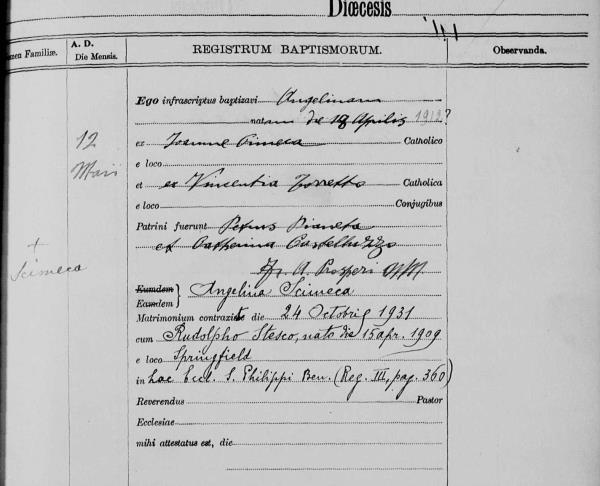 Diœcesis
Familiæ.
A. D.
Die Mensis.
REGISTRUM BAPTISMORUM.
Observanda.
Ego infrascriptus baptizavi Angelinam
natam die 18 Aprilis 1912?
12
Maii
ex Joanne Cimeca Catholico
e loco
et ex Vincentia Zorretto Catholica
e loco Conjugibus
Patrini fuerunt Petrus Pianeta
et Catherina Castelluzzo
Fr. A. Prosperi
+
Scimeca
Eumdem
Eamdem } Angelina Scimeca
Matrimonium contraxit die 24 Octobris 1931
cum Rudolpho Stesco, nato die 15 apr. 1909
e loco Springfield
in hac Eccl. S. Philippi Ben. (Reg. III, pag. 360)
Reverendus Pastor
Ecclesiae
mihi attestatus est, die